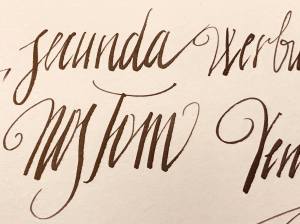 secunda Werbu
Nos Tom Ven